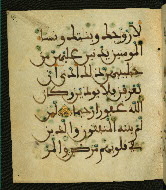 لأزوجك وبناتك ونساء
المومنين يدنين عليهن من
جلبيبهن ذلك أدنى أن
يعرفن فلا يوذين وكان
الله غفورا رحيما لئن
لم ينته المنفقون والذين
في قلوبهم مرض والمر